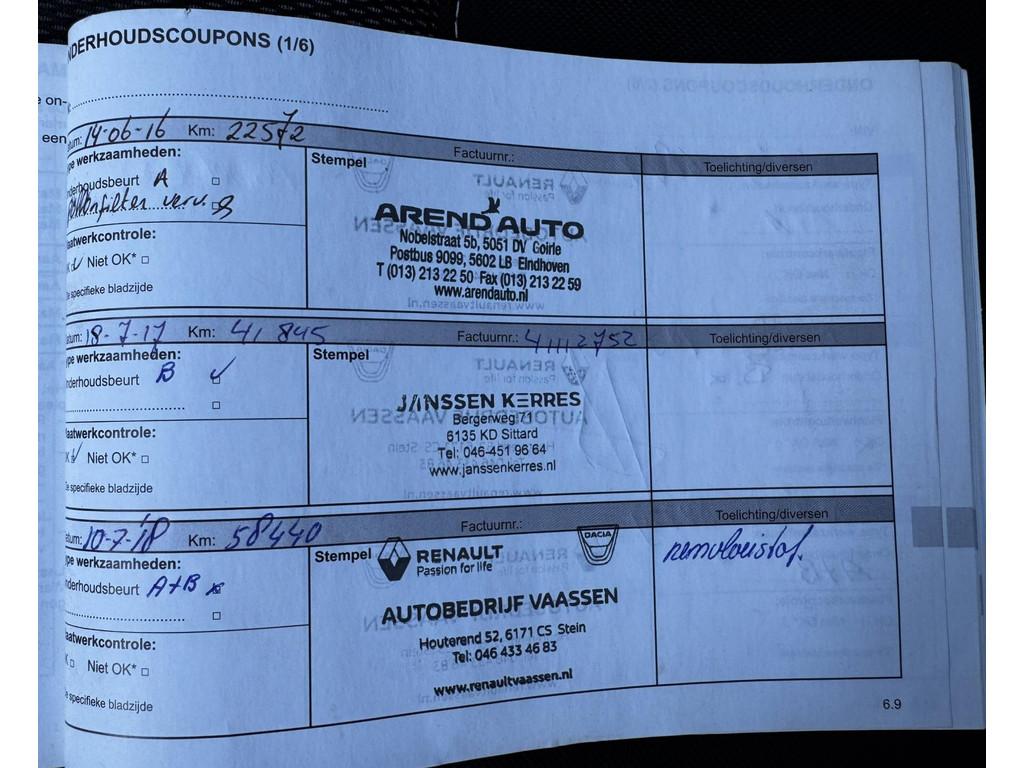 NDERHOUDSCOUPONS (1/6)
on-
een
tum: 14-06-16 Km: 22572 Factuurnr.: Toelichting/diversen
pe werkzaamheden:
nderhoudsbeurt A □
pollenfilter verv.
Stempel
AREND AUTO
Nobelstraat 5b, 5051 DV Goirle
Postbus 9099, 5602 LB Eindhoven
T (013) 213 22 50 Fax (013) 213 22 59
www.arendauto.nl
aatwerkcontrole:
K ✓ Niet OK* □
e specifieke bladzijde
tum: 18-7-17 Km: 41 845 Factuurnr.: 41112752 Toelichting/diversen
pe werkzaamheden:
nderhoudsbeurt B ✓
Stempel
JANSSEN KERRES
Bergerweg 71
6135 KD Sittard
Tel: 046-451 96 64
www.janssenkerres.nl
aatwerkcontrole:
K ✓ Niet OK* □
e specifieke bladzijde
tum: 10-7-'18 Km: 58440 Factuurnr.: Toelichting/diversen
pe werkzaamheden:
nderhoudsbeurt A+B x
Stempel
RENAULT
Passion for life
DACIA
AUTOBEDRIJF VAASSEN
Houterend 52, 6171 CS Stein
Tel: 046 433 46 83
www.renaultvaassen.nl
remvloeistof.
aatwerkcontrole:
K □ Niet OK* □
e specifieke bladzijde
6.9